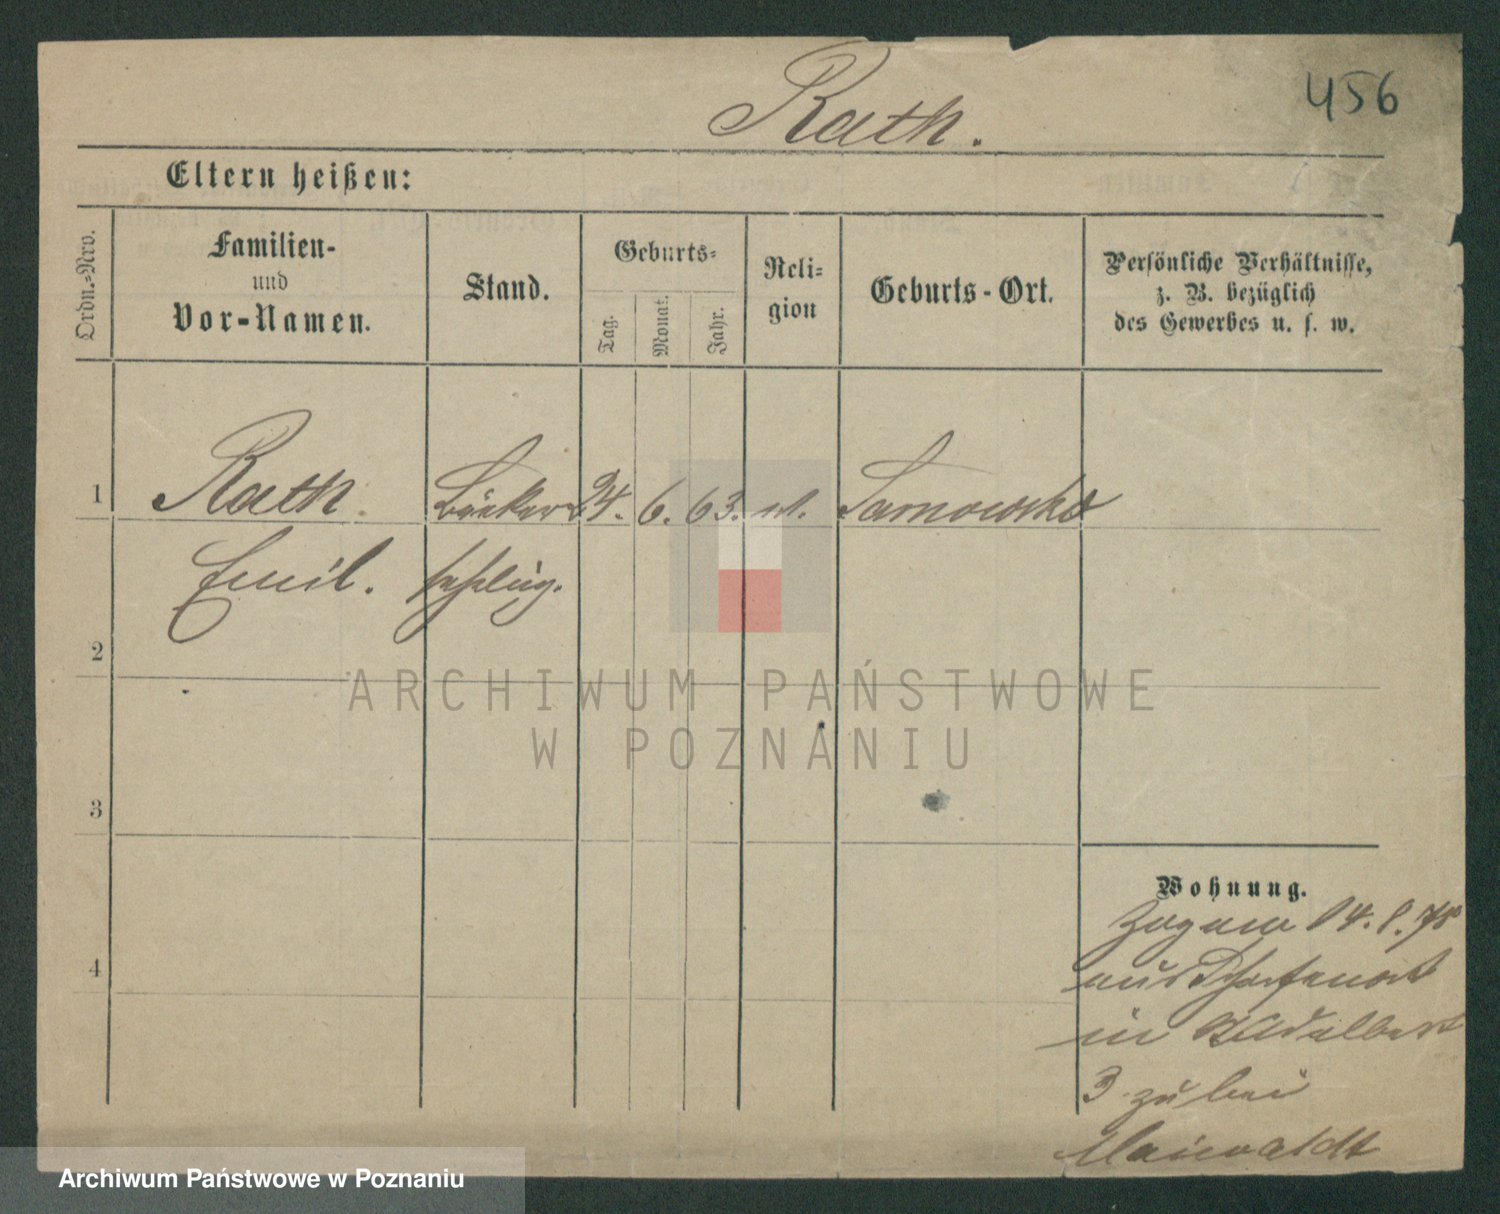 456
Rath.
Eltern heißen:
Ordn.-Nro.
Familien-
und
Vor-Namen.
Stand.
Geburts-
Tag.
Monat.
Jahr.
Reli-
gion
Geburts-Ort.
Persönliche Verhältnisse,
z. B. bezüglich
des Gewerbes u. s. w.
1
Rath
Bäcker
24. 6. 63.
Sarnowko
Emil.
2
3
4
Wohnung.
aus Scharfenort
in
3 zu bei
Maiwaldt
ARCHIWUM PAŃSTWOWE
W POZNANIU
Archiwum Państwowe w Poznaniu